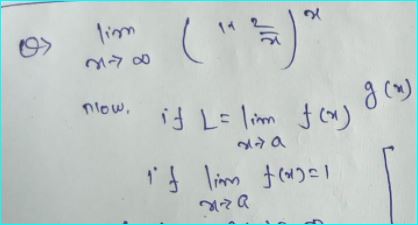 Q> lim x→∞ (1+ 2/x)^x
now. if L = lim x→a f(x)^g(x)
if lim x→a f(x)=1 [